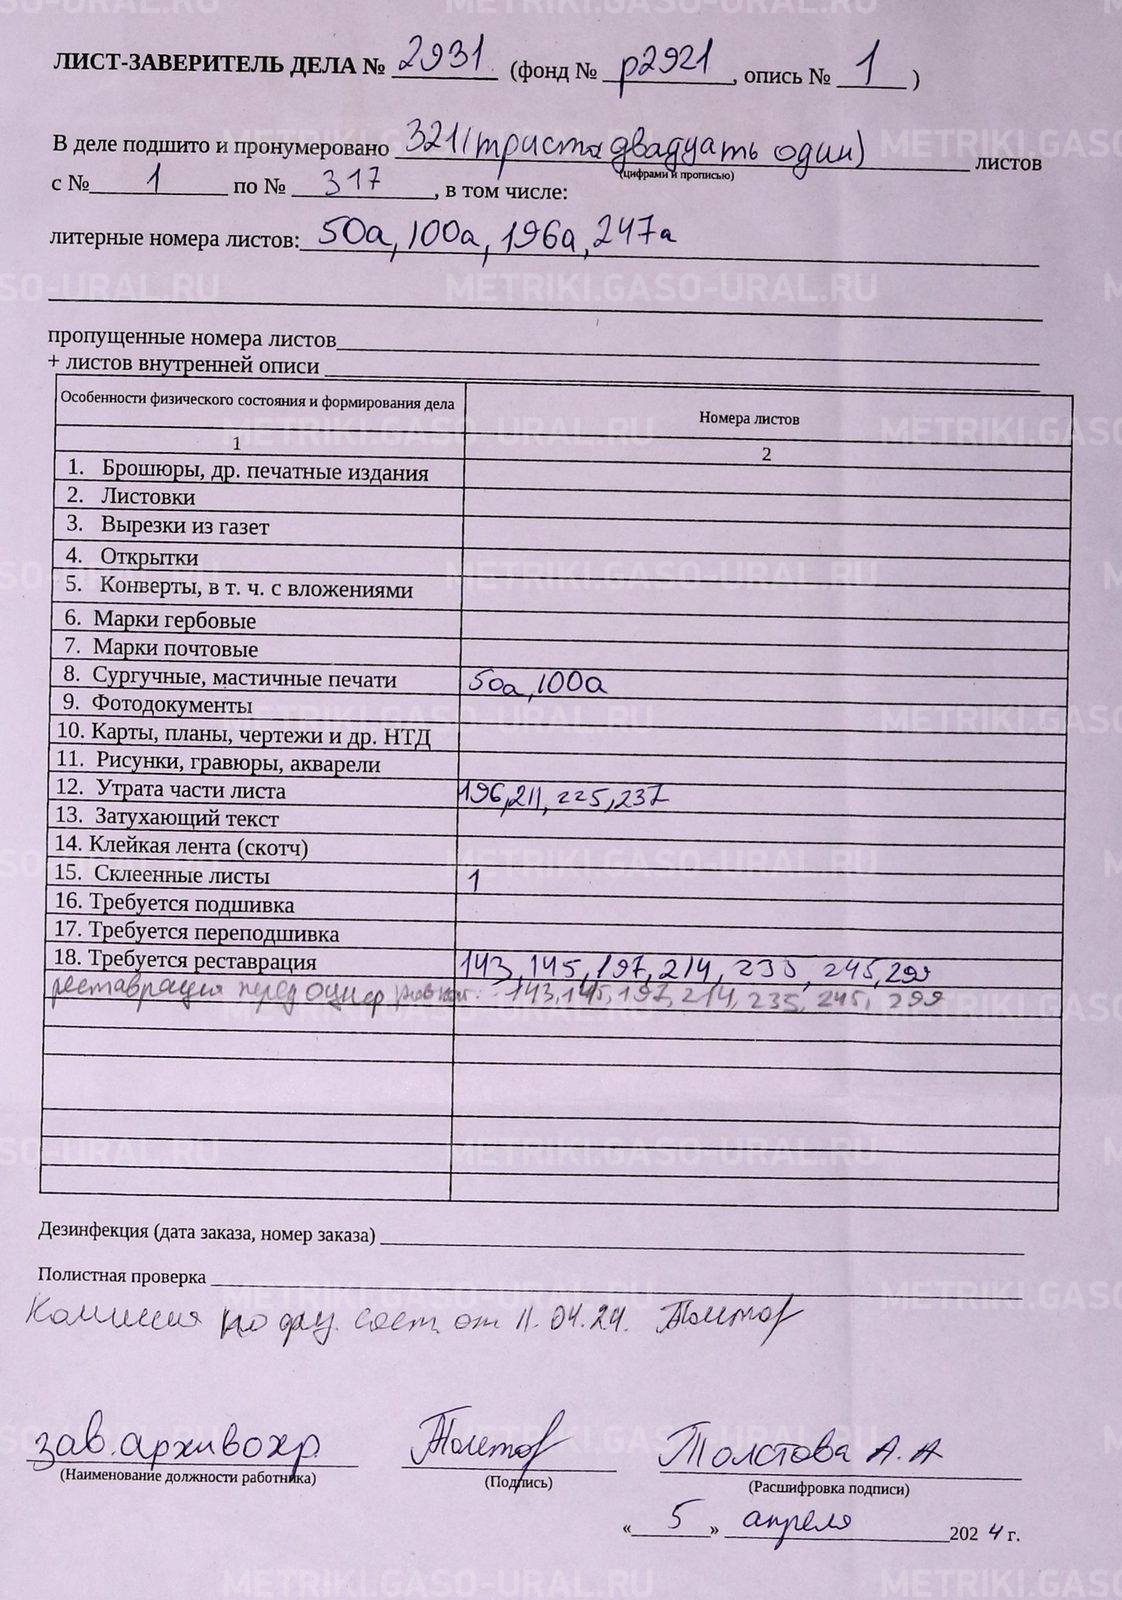 ЛИСТ-ЗАВЕРИТЕЛЬ ДЕЛА № 2931 (фонд № р2921, опись № 1 )
В деле подшито и пронумеровано 321(триста двадцать один) листов
(цифрами и прописью)
с № 1 по № 317, в том числе:
литерные номера листов: 50а, 100а, 196а, 247а
пропущенные номера листов
+ листов внутренней описи
Особенности физического состояния и формирования дела Номера листов
1 2
1. Брошюры, др. печатные издания
2. Листовки
3. Вырезки из газет
4. Открытки
5. Конверты, в т. ч. с вложениями
6. Марки гербовые
7. Марки почтовые
8. Сургучные, мастичные печати 50а, 100а
9. Фотодокументы
10. Карты, планы, чертежи и др. НТД
11. Рисунки, гравюры, акварели
12. Утрата части листа 196, 211, 225, 237
13. Затухающий текст
14. Клейкая лента (скотч)
15. Склеенные листы 1
16. Требуется подшивка
17. Требуется переподшивка
18. Требуется реставрация 143, 145, 197, 214, 235, 245, 299
реставрация перед оцифровкой: 143, 145, 197, 214, 235, 245, 299
Дезинфекция (дата заказа, номер заказа)
Полистная проверка
Комиссия по физ. сост. от 11.04.24. Толстов
зав. архивохр. Толстов Толстова А.А
(Наименование должности работника) (Подпись) (Расшифровка подписи)
« 5 » апреля 2024 г.
METRIKI.GASO-URAL.RU